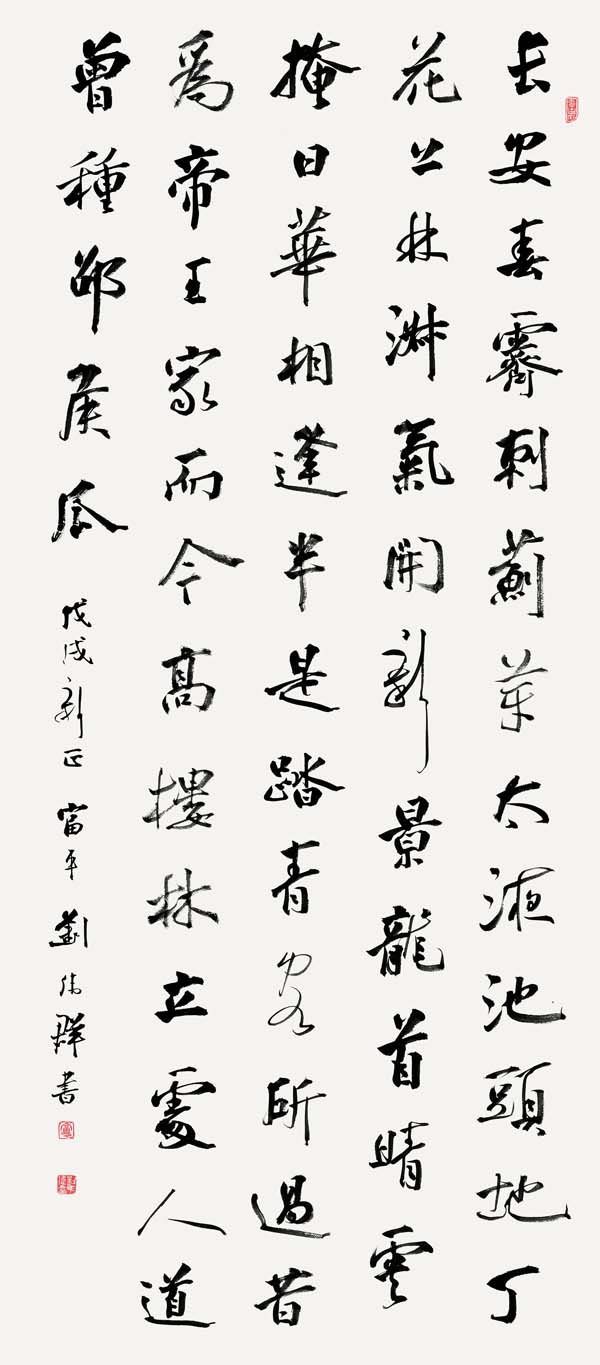 长安春霽刺薊芽太液池頭地丁
花上林淑氣開新景龍首晴雲
掩日華相逢半是踏青客所過昔
爲帝王家而今高樓林立處人道
曾種邵侯瓜
戊戌新正富平劉群書